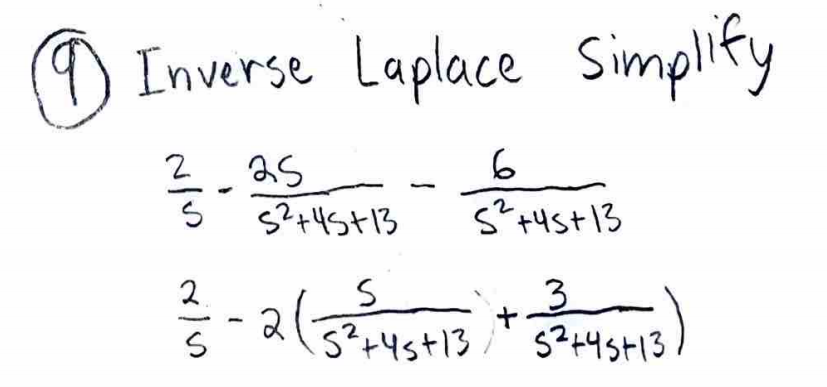 ⑨ Inverse Laplace Simplify
2/s - 2s/(s²+4s+13) - 6/(s²+4s+13)
2/s - 2(s/(s²+4s+13) + 3/(s²+4s+13))